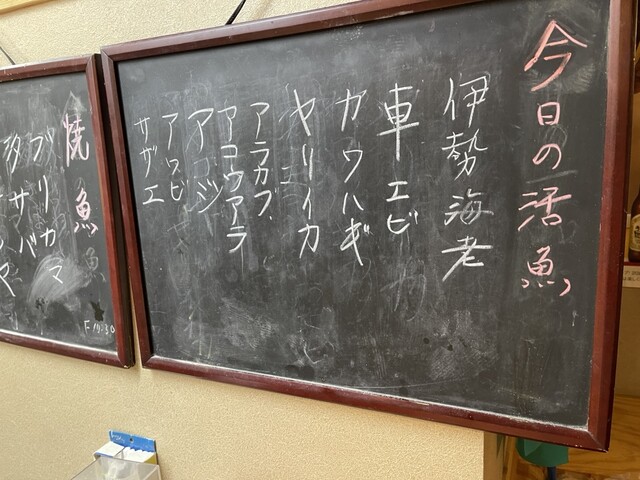 今日の活魚
伊勢海老
車エビ
ガウハギ
ヤリイカ
アラカブ
アコウアラ
アコジ
アワビ
サザエ
焼魚
ブリカマ
サバ